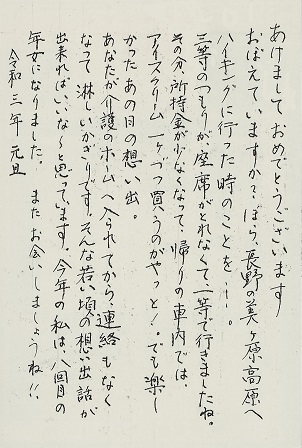 あけまして おめでとうございます
おぼえていますか？ほら、長野の美ヶ原高原へ
ハイキングに行った時のことを…。
三等のつもりが、座席がとれなくて、一等で行きましたね。
その分、所持金が少なくなって、帰りの車内では、
アイスクリーム一ヶづつ買うのがやっと！でも楽し
かったあの日の想い出。
あなたが介護のホームへ入られてから、連絡もなく
なって 淋しいかぎりです。そんな若い頃の想い出話が
出来ればいいな〜と思っています。今年の私は、八回目の
年女になりました。 またお会いしましょうね!!
令和三年 元旦